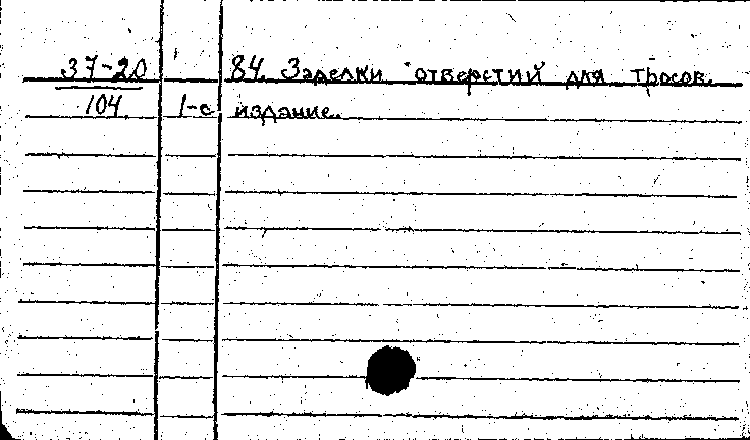 37-20 84. Заделки отверстий для тросов.
104. 1-е издание.